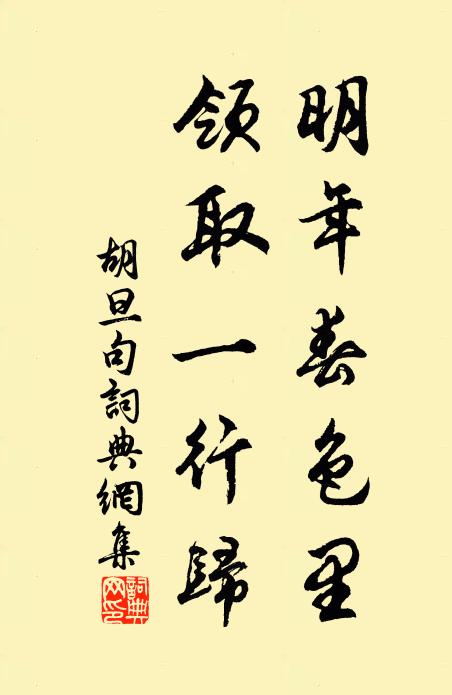 明年春色里
領取一行歸
胡旦句詞典網集
詞典网印